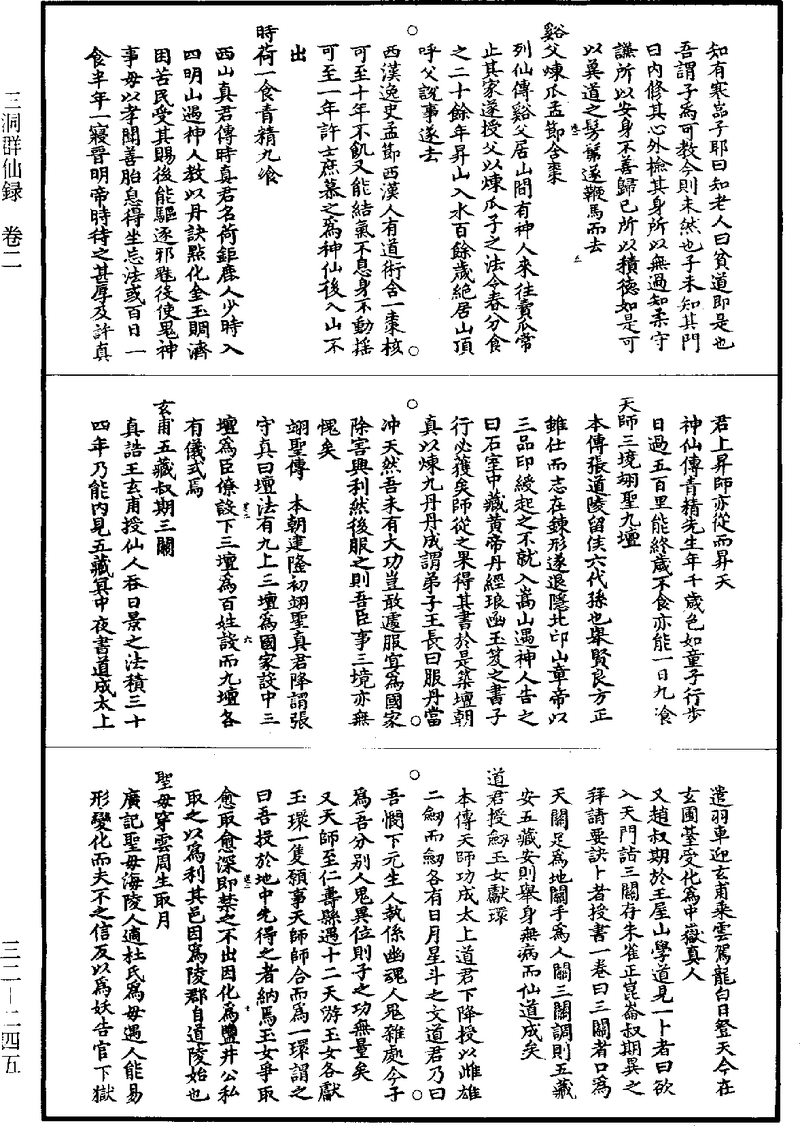 三洞群仙録　卷二
三二—二四五
知有寒嵓子耶曰知老人曰貧道即是也
吾謂子爲可教今則未然也子未知其門
曰内修其心外檢其身所以無過知柔守
謙所以安身不善歸已所以積德如是可
以冀道之髣髴遂鞭馬而去
谿父煉瓜孟節含棗
列仙傳谿父居山間有神人來往賣瓜常
止其家遂授父以煉瓜子之法令春分食
之二十餘年昇山入水百餘歲絶居山頂
呼父説事遂去
西漢逸史孟節西漢人有道術含一棗核
可至十年不飢又能結氣不息身不動摇
可至一年許士庶慕之爲神仙後入山不
出
時荷一食青精九飡
西山真君傳時真君名荷鉅鹿人少時入
四明山遇神人教以丹訣點化金玉賙濟
困苦民受其賜後能驅逐邪魅役使鬼神
事母以孝聞善胎息得坐忘法或百日一
食半年一寢晋明帝時待之甚厚及許真
君上昇師亦從而昇天
神仙傳青精先生年千歲色如童子行步
日過五百里能終歲不食亦能一日九飡
天師三境翊聖九壇
本傳張道陵留侯六代孫也舉賢良方正
雖仕而志在鍊形遂退隱北邙山章帝以
三品印綬起之不就入嵩山遇神人告之
曰石室中藏黄帝丹經琅函玉笈之書子
行必獲矣師從之果得其書於是築壇朝
真以煉九丹丹成謂弟子王長曰服丹當
冲天然吾未有大功豈敢遽服宜爲國家
除害興利然後服之則吾臣事三境亦無
愧矣
翊聖傳　本朝建隆初翊聖真君降謂張
守真曰壇法有九上三壇爲國家設中三
壇爲臣僚設下三壇爲百姓設而九壇各
有儀式焉
玄甫五藏叔期三關
真誥王玄甫授仙人吞日景之法積三十
四年乃能内見五藏冥中夜書道成太上
遣羽車迎玄甫乘雲駕龍白日登天今在
玄圃臺受化爲中嶽真人
又趙叔期於王屋山學道見一卜者曰欲
入天門詣三關存朱雀正崑崙叔期異之
拜請要訣卜者授書一卷曰三關者口爲
天關足爲地關手爲人關三關調則五藏
安五藏安則舉身無病而仙道成矣
道君授劒玉女獻環
本傳天師功成太上道君下降授以雌雄
二劒而劒各有日月星斗之文道君乃曰
吾憫下元生人執係幽魂人鬼雜處今子
爲吾分别人鬼異位則子之功無量矣
又天師至仁壽縣遇十二天游玉女各獻
玉環一隻願事天師師合而爲一環謂之
曰吾投於地中先得之者納焉玉女爭取
愈取愈深即禁之不出因化爲鹽井公私
取之以爲利其邑因爲陵郡自道陵始也
聖母穿雲周生取月
廣記聖母海陵人適杜氏爲毋遇人能易
形變化而夫不之信反以爲妖告官下獄